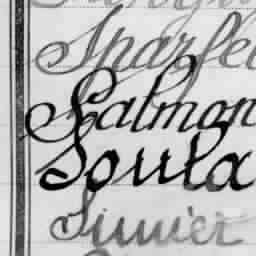 Sparfel
Salmon
Soula
Simier